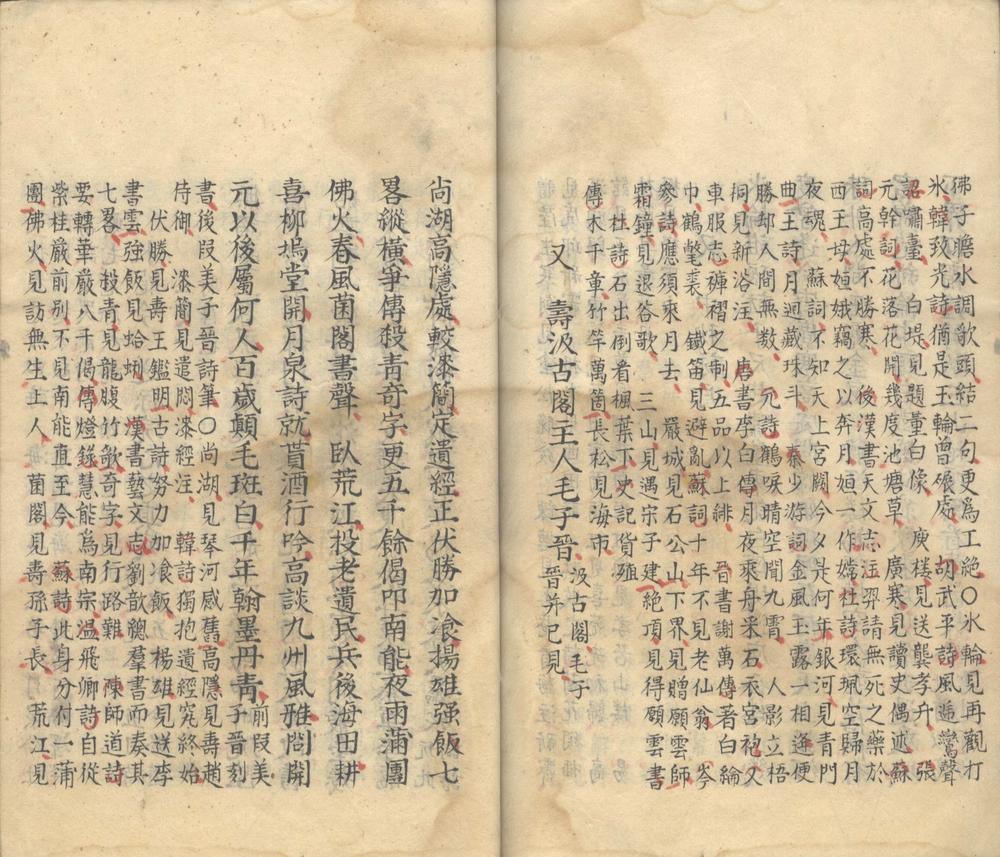 佛子瞻水調歌頭結二句更爲工絶〇氷輪見再觀打
氷韓致光詩猶是玉輪曾碾處 胡武平詩風遞鸞聲
詔嘯臺 白堤見題董白像 庾樓見送龔孝升 張
元幹詞花落花開幾度池塘草 廣寒見讀史偶述蘇
詞高處不勝寒 後漢書天文志注羿請無死之藥於
西王母姮娥竊之以奔月姮一作嫦杜詩環珮空歸月
夜魂 蘇詞不知天上宮闕今夕是何年銀河見青門
曲王詩月迴藏珠斗 秦少游詞金風玉露一相逢便
勝却人間無數 元詩鶴唳晴空聞九霄 人影立梧
桐見新浴汪 唐書李白傳月夜乘舟采石衣宮袍又
車服志褲褶之制五品以上緋 晉書謝萬傳著白綸
巾鶴氅裘 鐵笛見避亂蘇詞十年不見老仙翁 岑
參詩應須乘月去 嚴城見石公山下界見贈願雲師
霜鐘見退谷歌 三山見遇宋子建 絶頂見得願雲書
杜詩石出倒看楓葉下 史記貨殖
傳木千章竹竿萬箇 長松見海市
又 壽汲古閣主人毛子晉 汲古閣毛子晉并已見
尚湖高隱處較漆簡定遺經正伏勝加飡揚雄强飯七
畧縱横爭傳殺青奇字更五千餘偈叩南能夜雨滿團
佛火春風菌閣書聲 臥荒江投老遺民兵後海田耕
喜柳塢堂開月泉詩就貰酒行吟高談九州風雅問開
元以後屬何人百歲顛毛斑白千年翰墨丹青 前段美子晉刻
書後段美子晉詩筆〇尚湖見琴河感舊高隱見壽趙
侍御 漆簡見遣悶漆經注 韓詩獨抱遺經究終始
伏勝見壽王鑑明古詩努力加飡飯 楊雄見送李
書雲強飯見蛤蜊 漢書藝文志劉歆總羣書而奏其
七畧 殺青見龍腹竹歌奇字見行路難 陳師道詩
要轉華嚴八千偈傳燈錄慧能爲南宗温飛卿詩自從
紫桂巖前別不見南能直至今 蘇詩此身分付一蒲
團佛火見訪無生上人 菌閣見壽孫子長 荒江見